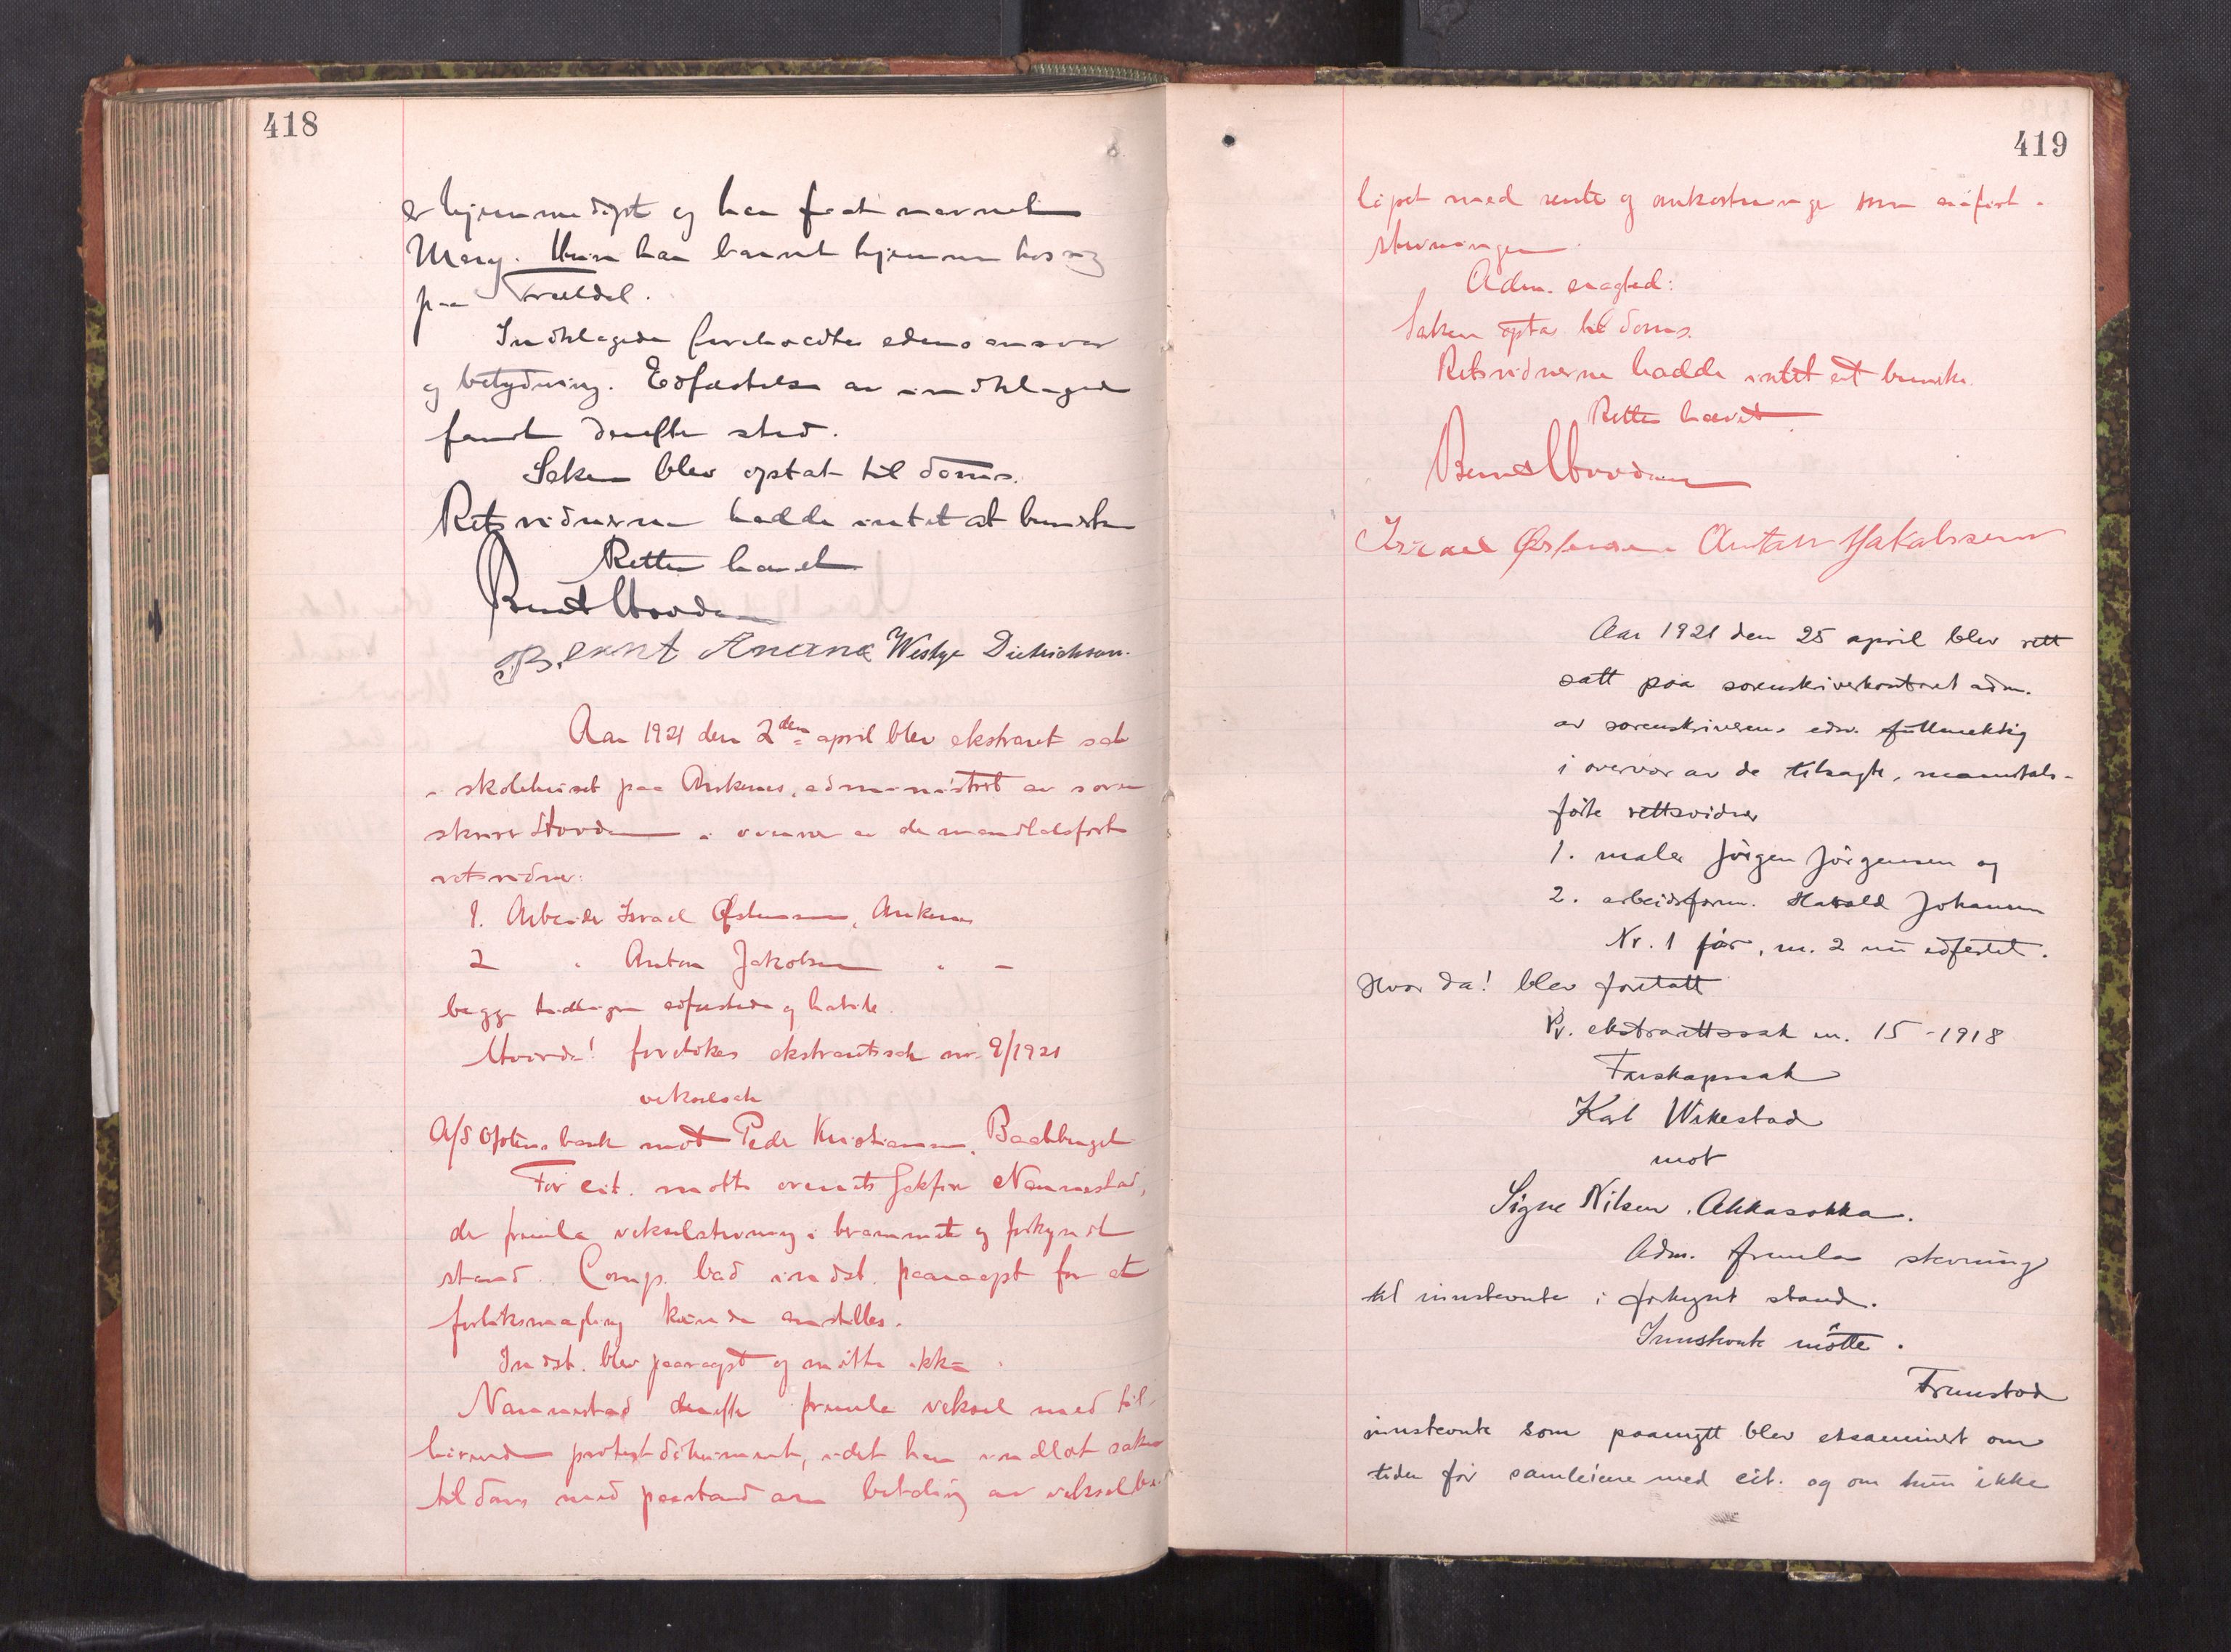 418
er hjemmedøpt og har faat navnet
Mary. Hun har barnet hjemme hos sig
paa Trældal.
Indklagede foreholdtes edens ansvar
og betydning. Edfæstelse av indklagede
fandt derefter sted.
Saken blev optat til doms.
Retsvidnerne hadde intet at bemerke
Retten hævet
Bernt Hovda
Bernt Westye Dietrichson.
Aar 1921 den 2den april blev ekstraret sat
i skolehuset paa Ankenes, administrert av soren
skriver Hovda i overvær av de mandtalsførte
retsvidner:
1. Arbeider Israel Østensen, Ankenes
2 " Anton Jakobsen " -
begge tidligere edfæstede og habile.
Hvorda! foretokes ekstraretssak nr. 9/1921
vekselsak
A/S Ofotens bank mot Peder Kristiansen, Beckhaugen
For cit. møtte overrets Nannestad,
der fremla vekselstevning i berammet og forkyndt
stand. Comp. bad indst. paaraapt for at
forliksmægling kunde anstilles.
Indst. blev paaraapt og møtte ikke.
Nannestad derefter fremla veksel med til-
hørende protestdokument, idet han indlot saken
til doms med paastand om betaling av vekselbe-
419
løpet med rente og omkostninger som anført i
stevningen.
Adm. eragted:
Saken optas til doms.
Retsvidnerne hadde intet at bemerke.
Retten hævet
Bernt Hovda
Israel Østensen Anton Jakobsen
Aar 1921 den 25 april blev rett
satt paa sorenskriverkontoret adm.
av sorenskriverens edsv. fullmektig
i overvær av de tilsagte, manntals-
førte rettsvidner
1. maler Jörgen Jörgensen og
2. arbeidsform. Harald Johansen
Nr. 1 før, nr. 2 nu edfestet.
Hvor da! blev foretatt
Pr. ekstrarettssak nr. 15 - 1918
Farskapssak
Karl Wikestad
mot
Signe Nilsen, Akkasokka.
Adm. fremla stevning
til innstevnte i forkynt stand.
Innstevnte møtte.
Fremstod
innstevnte som paanytt blev eksaminert om
tiden for samleiene med cit. og om hun ikke